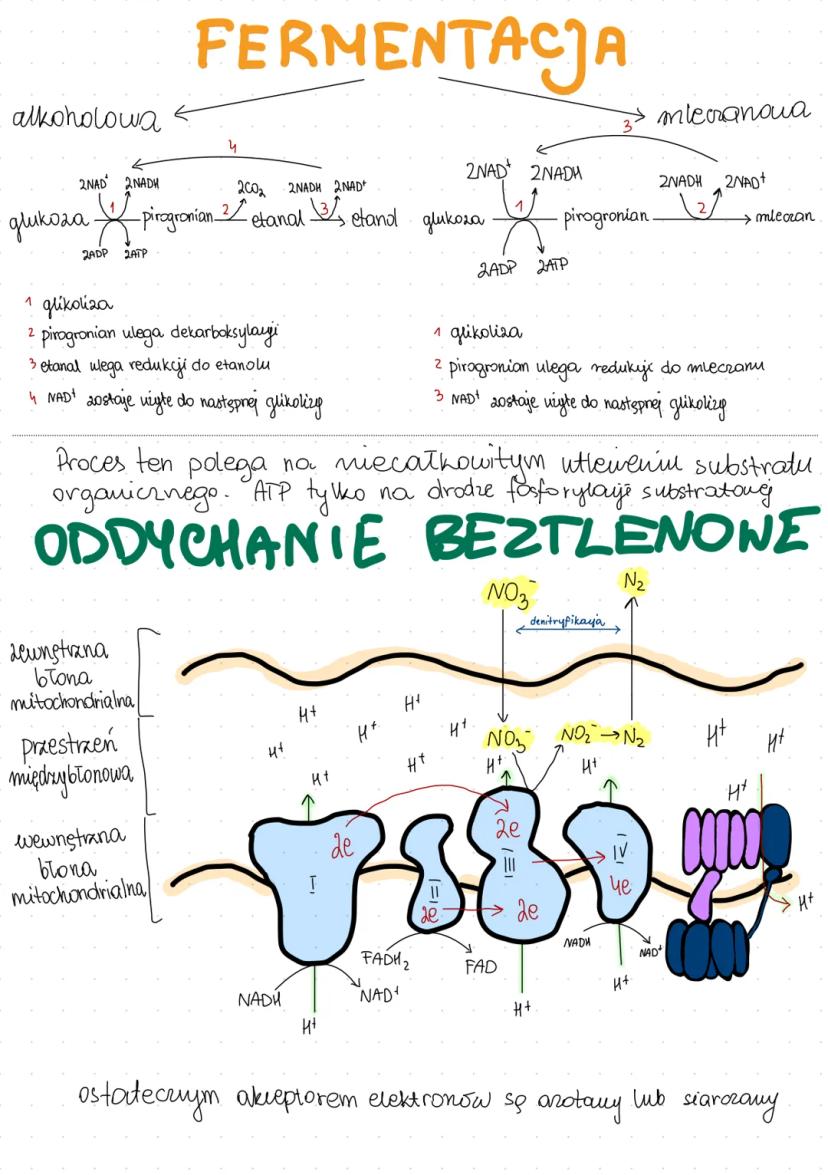 FERMENTACJA
alkoholowa
mleczanowa
4
2NAD⁺ 2NADH 2CO₂ 2NADH 2NAD⁺
glukoza 1 pirogronian 2 etanal 3 etanol
2ADP 2ATP
3
2NAD⁺ 2NADH 2NADH 2NAD⁺
glukoza 1 pirogronian 2 mleczan
2ADP 2ATP
1 glikoliza
2 pirogronian ulega dekarboksylacji
3 etanal ulega redukcji do etanolu
4 NAD⁺ zostaje użyte do następnej glikolizy
1 glikoliza
2 pirogronian ulega redukcji do mleczanu
3 NAD⁺ zostaje użyte do następnej glikolizy
Proces ten polega na niecałkowitym utlenieniu substratu
organicznego. ATP tylko na drodze fosforylacji substratowej
ODDYCHANIE BEZTLENOWE
NO₃⁻ N₂
denitryfikacja
zewnętrzna
błona
mitochondrialna
H⁺ H⁺ H⁺ H⁺ H⁺ H⁺ H⁺
NO₃⁻ NO₂⁻ → N₂
H⁺ H⁺
przestrzeń
międzybłonowa
H⁺ H⁺ H⁺
wewnętrzna
błona
mitochondrialna
2e 2e
I II III IV
2e 2e 4e
H⁺
FADH₂ FAD
NADH NAD⁺
NADH NAD⁺
H⁺ H⁺ H⁺
ostatecznym akceptorem elektronów są azotany lub siarczany